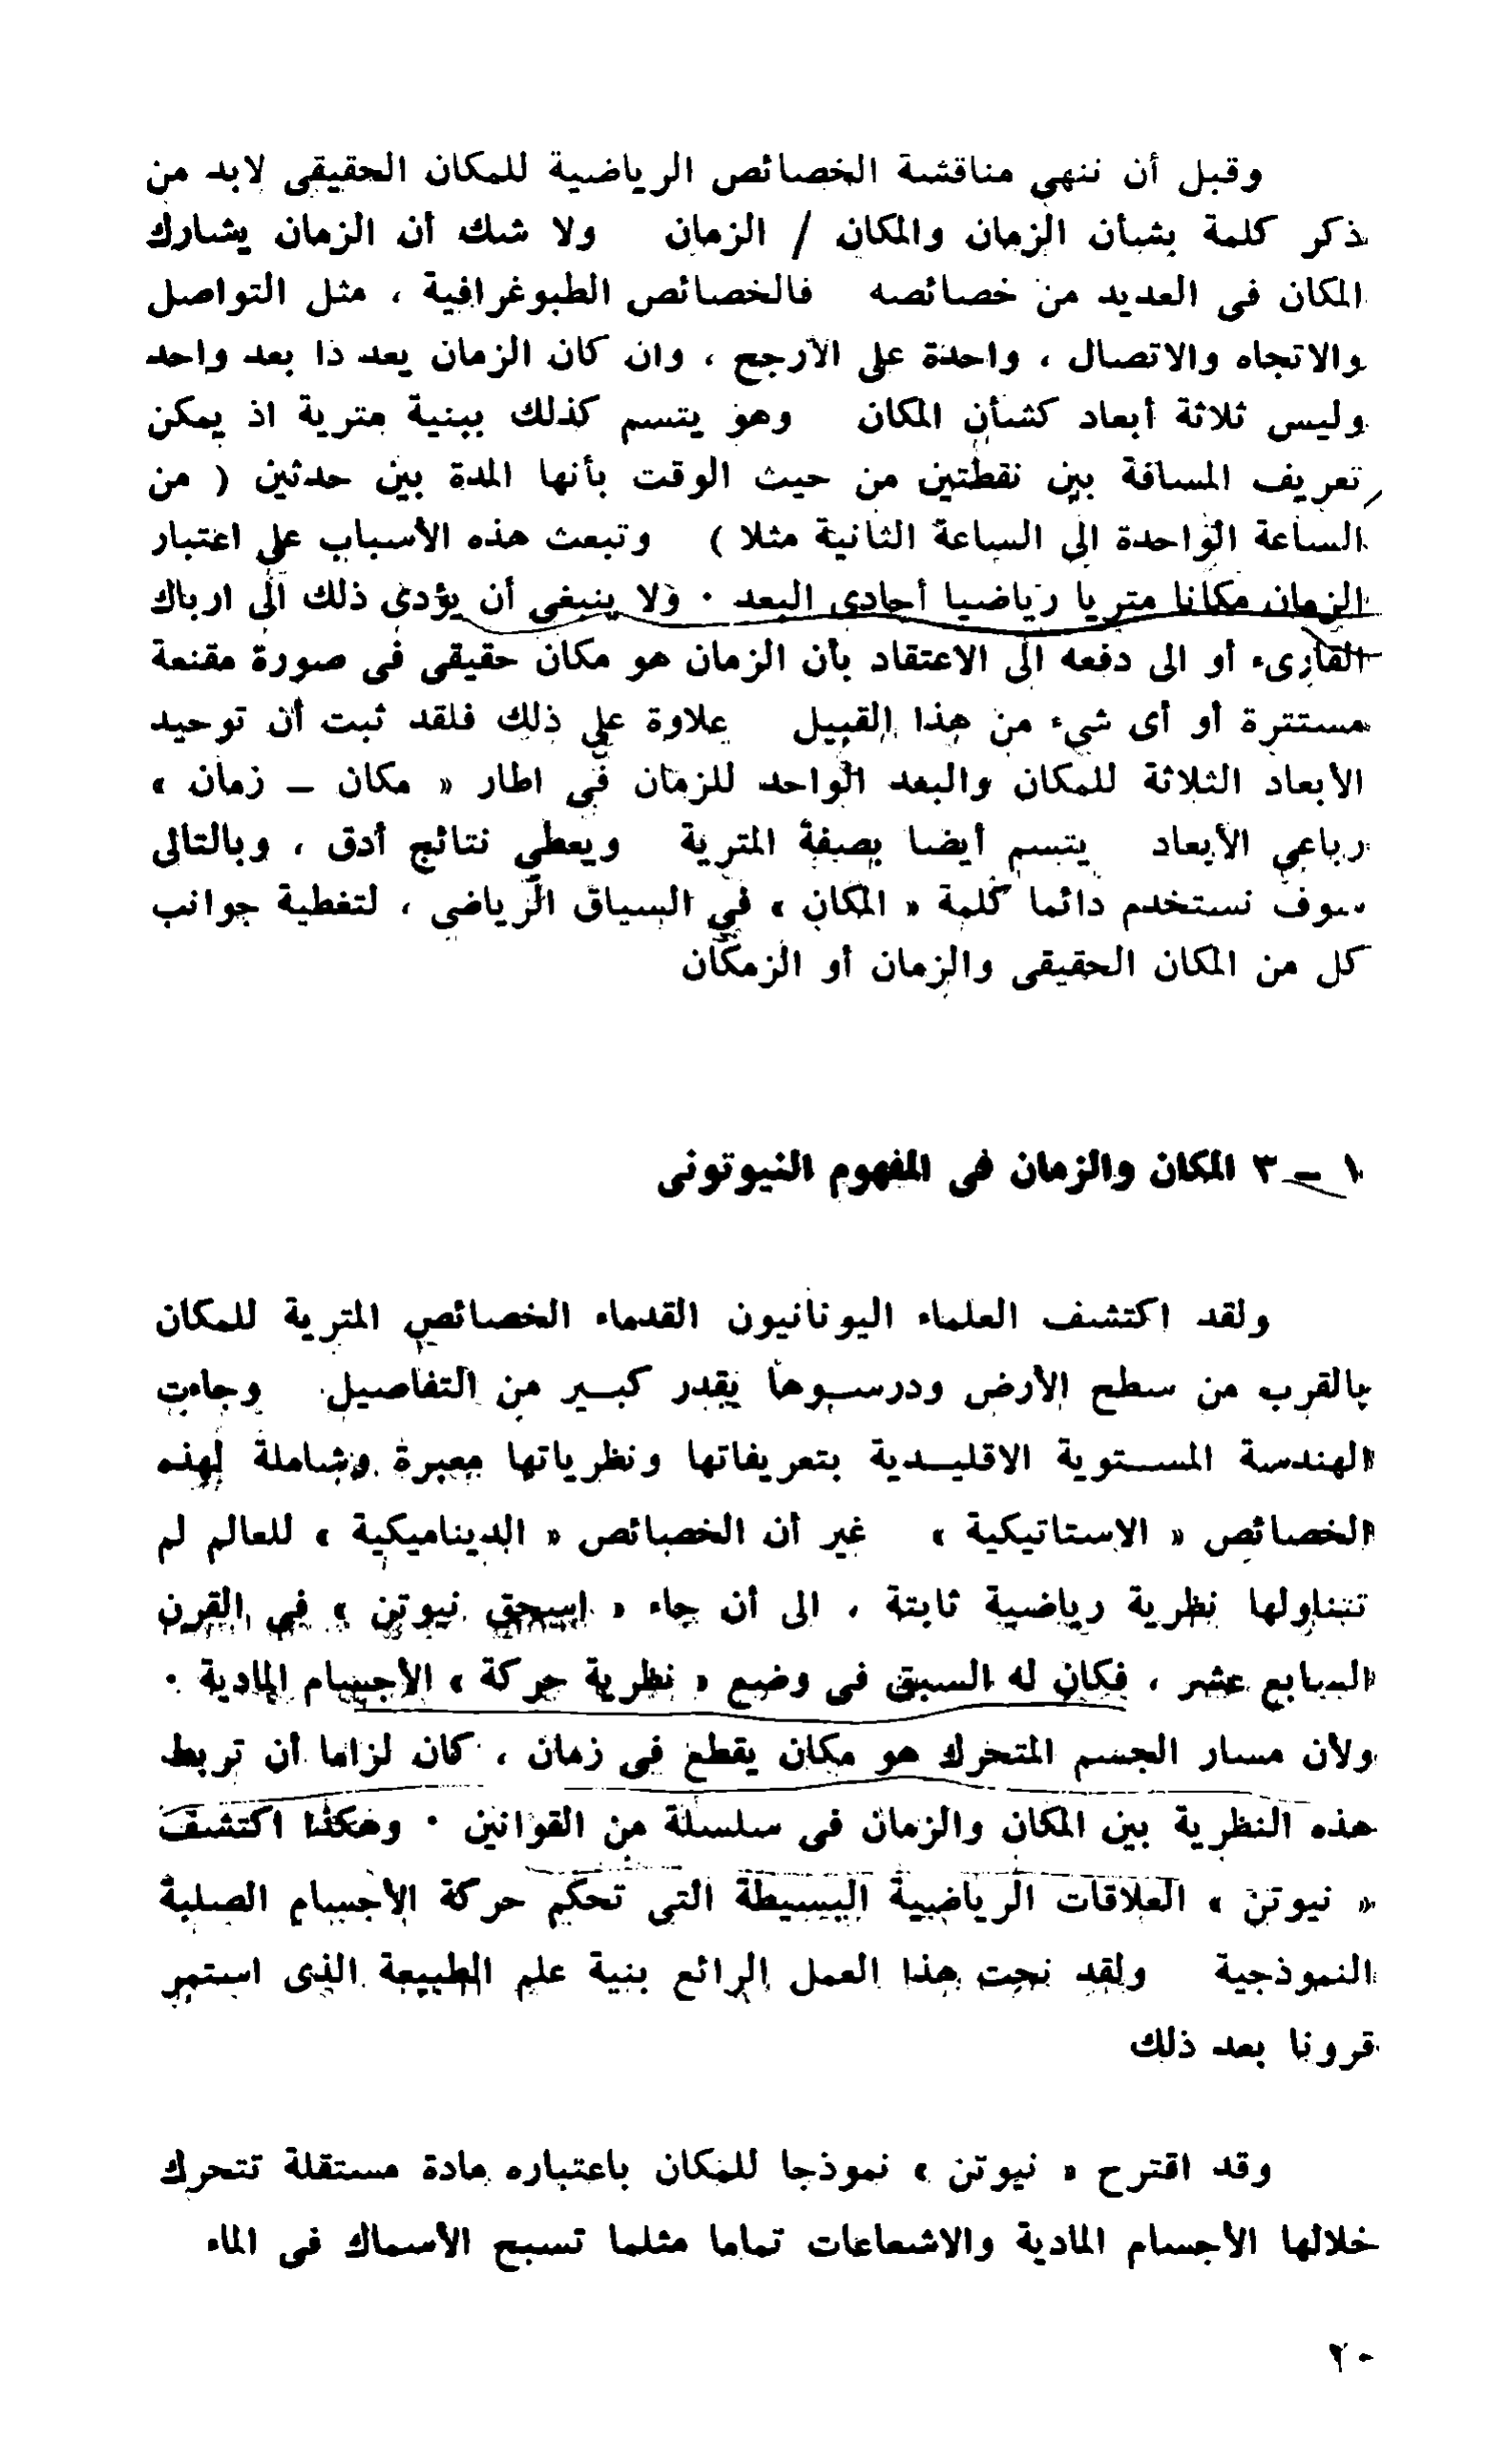 وقبل أن ننهى مناقشة الخصائص الرياضية للمكان الحقيقى لابد من
ذكر كلمة بشأن الزمان والمكان / الزمان ولا شك أن الزمان يشارك
المكان فى العديد من خصائصه فالخصائص الطبوغرافية ، مثل التواصل
والاتجاه والاتصال ، واحدة على الأرجح ، وان كان الزمان يعد ذا بعد واحد
وليس ثلاثة أبعاد كشأن المكان وهو يتسم كذلك ببنية مترية اذ يمكن
تعريف المسافة بين نقطتين من حيث الوقت بأنها المدة بين حدثين ( من
الساعة الواحدة الى الساعة الثانية مثلا ) وتبعث هذه الأسباب على اعتبار
الزمان مكانا متريا رياضيا أحادى البعد · ولا ينبغى أن يؤدى ذلك الى ارباك
القارىء أو الى دفعه الى الاعتقاد بأن الزمان هو مكان حقيقى فى صورة مقنعة
مستترة أو أى شىء من هذا القبيل علاوة على ذلك فلقد ثبت أن توحيد
الأبعاد الثلاثة للمكان والبعد الواحد للزمان فى اطار « مكان ــ زمان »
رباعى الأبعاد يتسم أيضا بصفة المترية ويعطى نتائج أدق ، وبالتالى
سوف نستخدم دائما كلمة « المكان » فى السياق الرياضى ، لتغطية جوانب
كل من المكان الحقيقى والزمان أو الزمكان
١ ــ ٣ المكان والزمان فى المفهوم النيوتونى
ولقد اكتشف العلماء اليونانيون القدماء الخصائص المترية للمكان
بالقرب من سطح الأرض ودرسوها بقدر كبير من التفاصيل وجاءت
الهندسة المستوية الاقليدية بتعريفاتها ونظرياتها معبرة وشاملة لهذه
الخصائص « الاستاتيكية » غير أن الخصائص « الديناميكية » للعالم لم
تتناولها نظرية رياضية ثابتة ، الى أن جاء « اسحق نيوتن » فى القرن
السابع عشر ، فكان له السبق فى وضع « نظرية حركة » الأجسام المادية ·
ولأن مسار الجسم المتحرك هو مكان يقطع فى زمان ، كان لزاما أن تربط
هذه النظرية بين المكان والزمان فى سلسلة من القوانين · وهكذا اكتشف
« نيوتن » العلاقات الرياضية البسيطة التى تحكم حركة الأجسام الصلبة
النموذجية ولقد نحت هذا العمل الرائع بنية علم الطبيعة الذى استمر
قرونا بعد ذلك
وقد اقترح « نيوتن » نموذجا للمكان باعتباره مادة مستقلة تتحرك
خلالها الأجسام المادية والاشعاعات تماما مثلما تسبح الأسماك فى الماء
٢٠